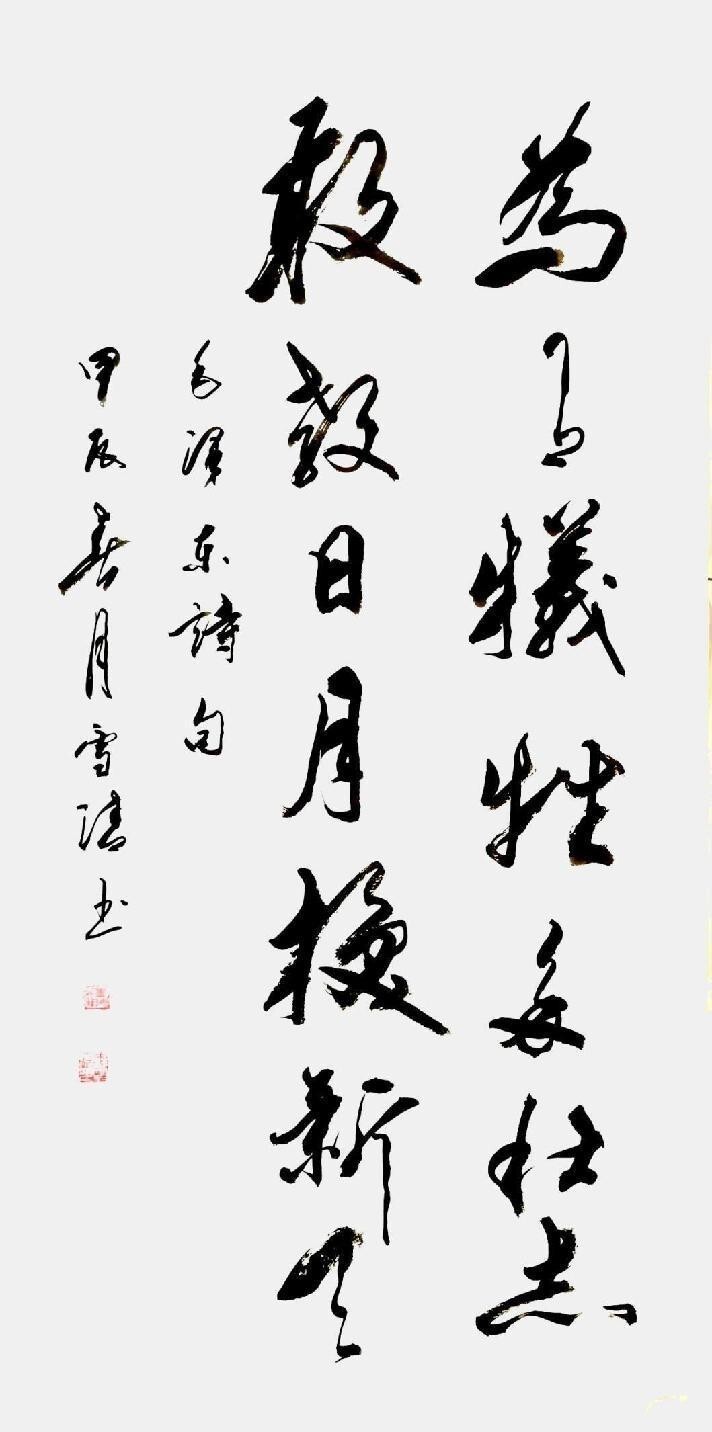 為有犧牲多壯志
敢教日月換新天
毛澤東詩句
甲辰春月雪清书